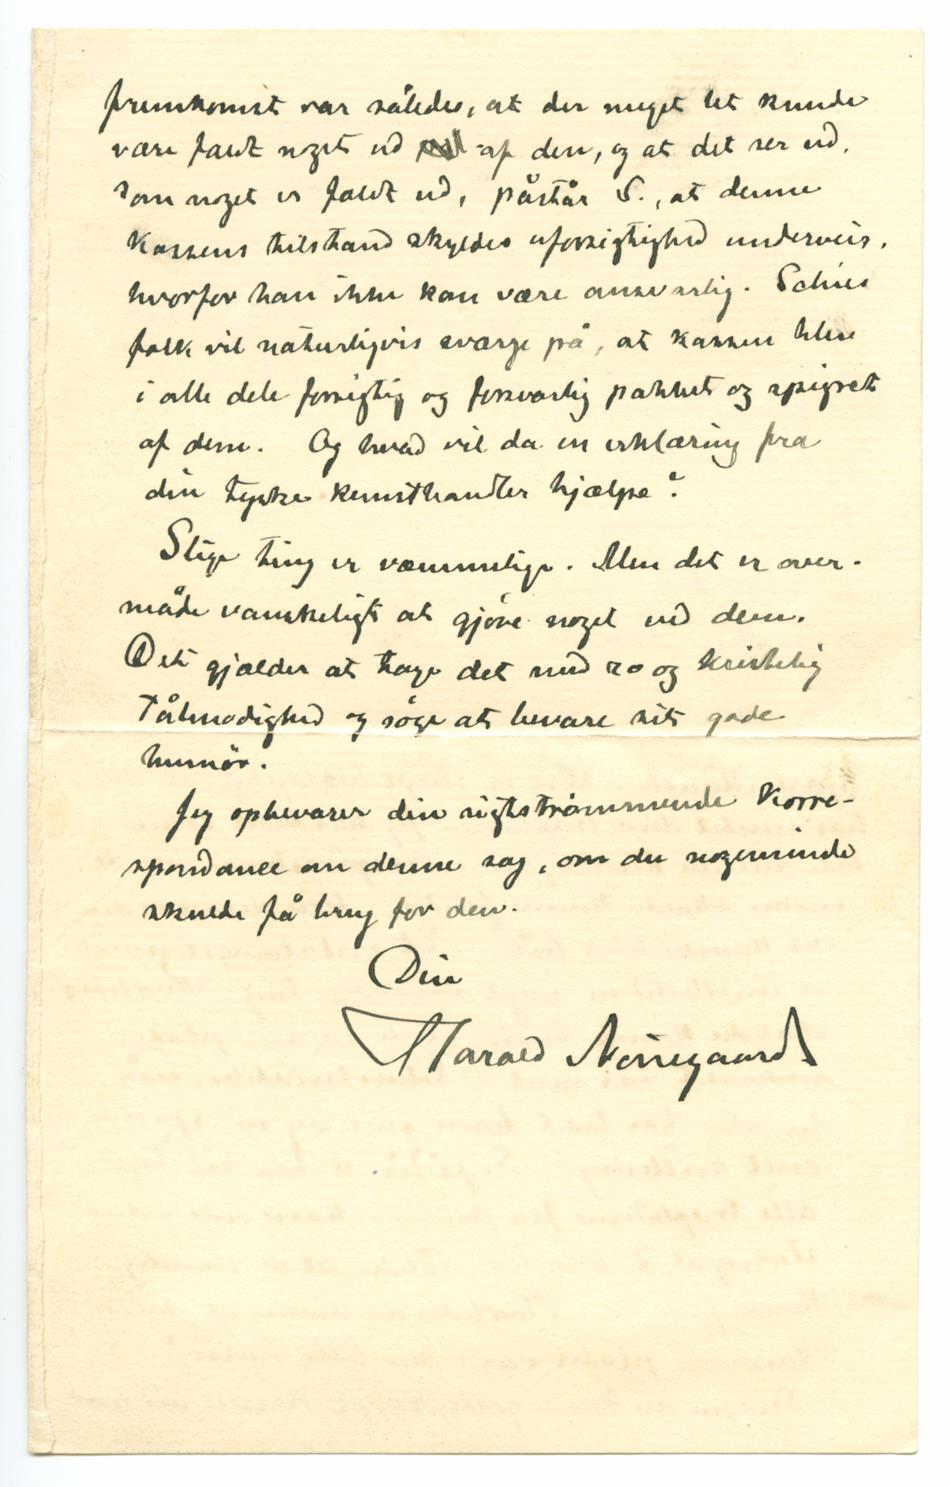 fremkomst var således, at der meget let kunde
være faldt noget ud af den, og at det ser ud,
som noget er faldt ud, påstår S., at denne
kassens tilstand skyldes uforsigtighed underveis,
hvorfor han ikke kan være ansvarlig. Schies
folk vil naturligvis sværge på, at kassen blev
i alle dele forsigtig og forsvarlig pakket og spigret
af dem. Og hvad vil da en erklæring fra
din tyske kunsthandler hjælpe?
Slige ting er væmmelige. Men det er over-
måde vanskeligt at gjøre noget ved dem.
Det gjælder at tage det med ro og kristelig
tålmodighed og søge at bevare sit gode
humør.
Jeg opbevarer din rigtstrømmende korre-
spondance om denne sag, om du nogensinde
skulde få brug for den.
Din
Harald Nørregaard